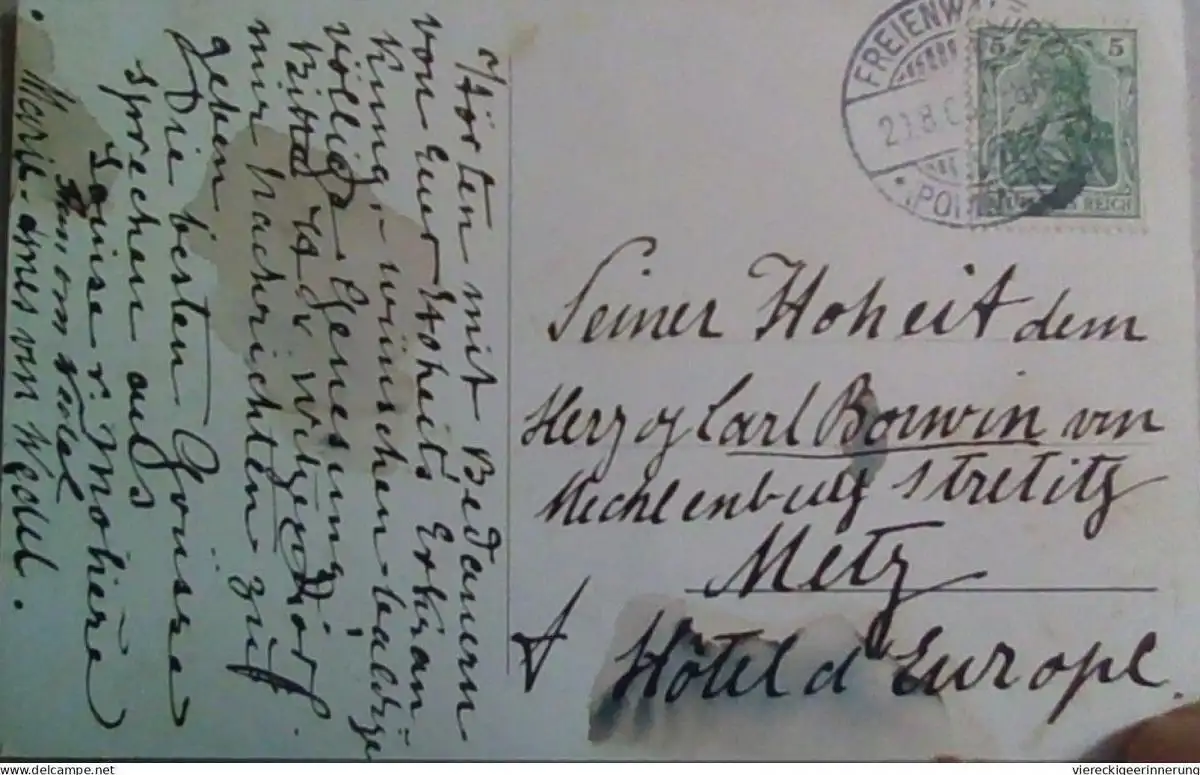 Hörten mit Bedauern
von Euer Hoheits Erkran=
kung, - wünschen baldige
völlige Genesung,
mir Nachrichten zu
geben
Die besten Grüsse
sprechen aus
Louise v.
von Wedel
Marie-Agnes von Wedel.
FREIENW
5 5
REICH
Seiner Hoheit dem
Herzog Carl Borwin von
Mecklenburg Strelitz
Metz
Hôtel d'Europe.
www.delcampe.net
viereckigeerinnerung